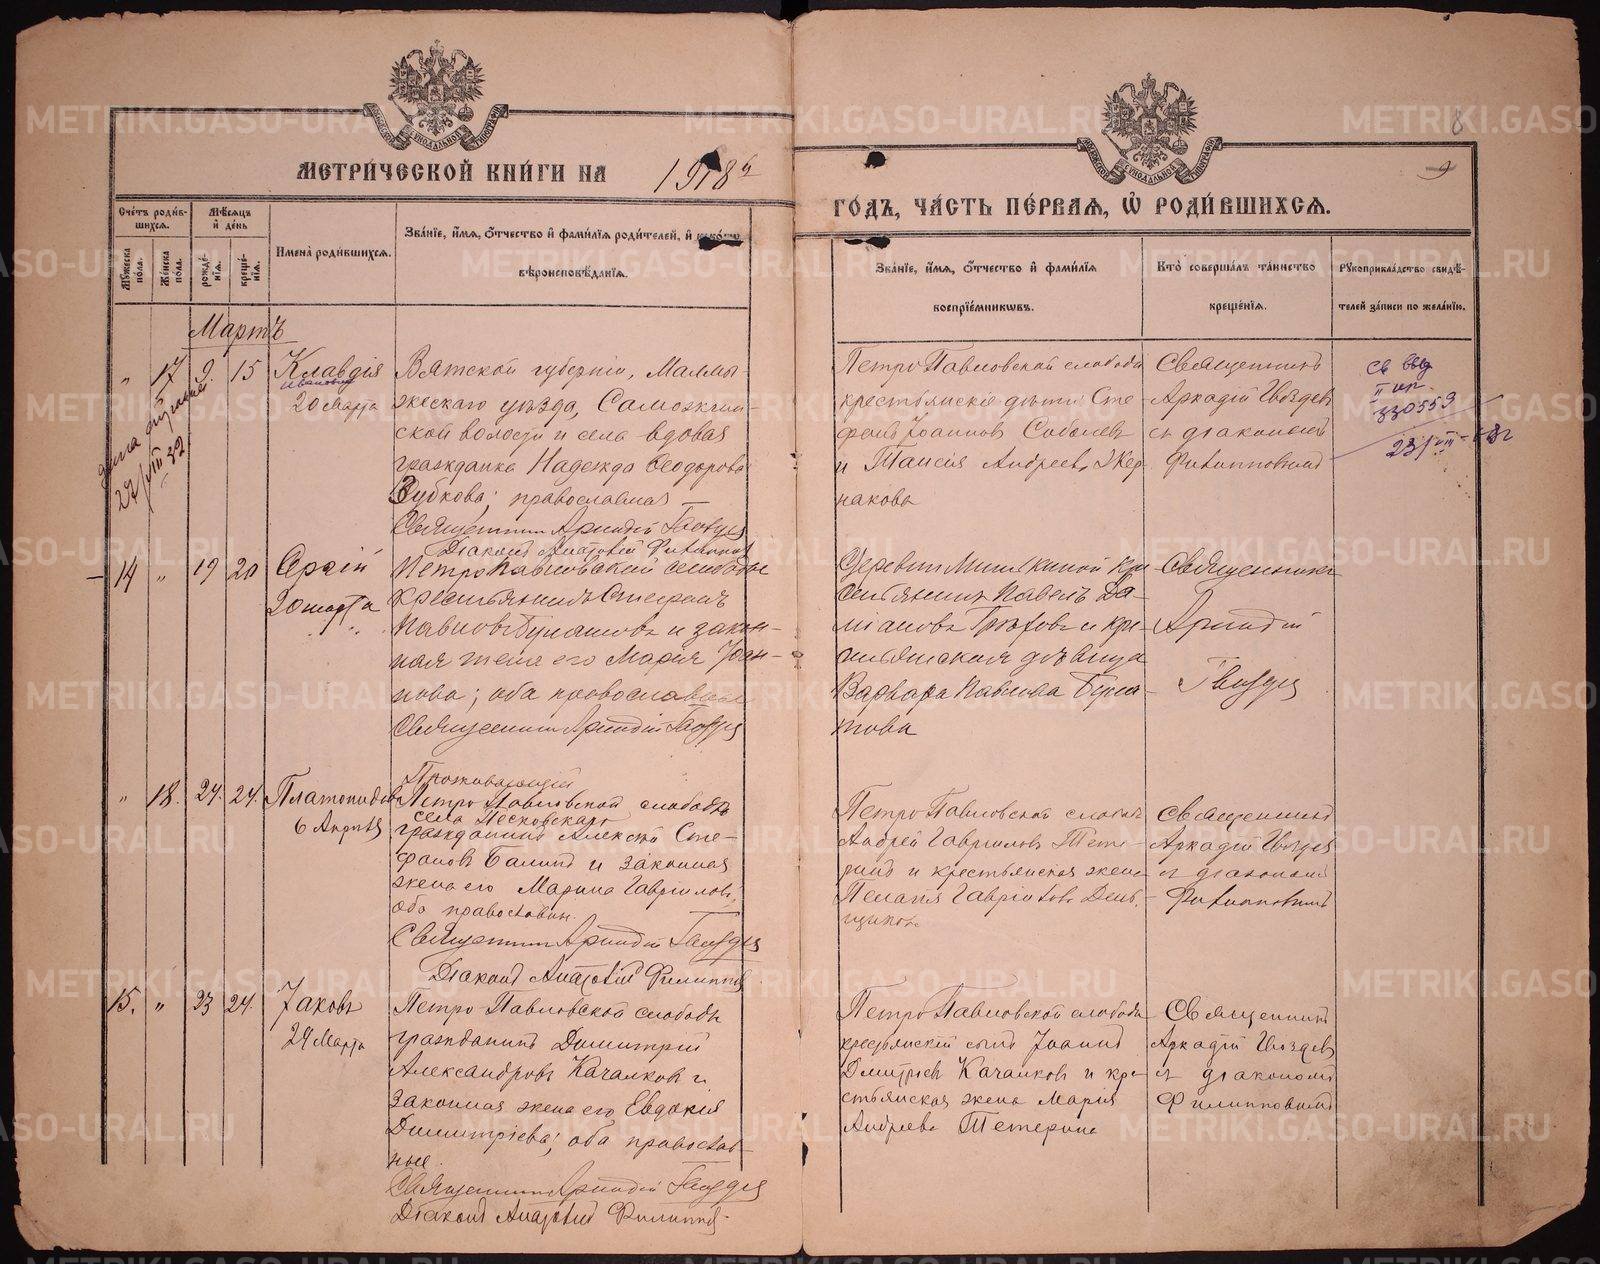 МЕТРИ́ЧЕСКОЙ КНИ́ГИ НА 1918 ГОДЪ, ЧА́СТЬ ПЕ́РВАЯ, Ѡ РОДИ́ВШИХСЯ.
8
9
Счетъ роди́вшихся.
Мѣсяцъ и день
Имена̀ роди́вшихся.
Зва́нїе, и́мя, о́тчество и фами́лїя роди́телей, и како́гѡ
вѣроисповѣ́данїя.
Зва́нїе, и́мя, о́тчество и фами́лїя
воспрїе́мникѡвъ.
Кто̀ соверша́лъ та́инство
креще́нїя.
Рꙋкоприкла́дство свидѣ́-
телей за́писи по жела́нїю.
Мꙋжеска пола.
Же́нска пола.
рожде́нїя.
креще́нїя.
Мартъ
" 17 9 15 Клавдія
20 Марта
Вятской губерніи, Малмы-
жскаго уѣзда,
ской волости и села вдовая
гражданка Надежда Ѳеодорова
Зубкова; православная
Священникъ Аркадій Гвоздев
Діаконъ Анатолій Филиппов
Петро Павловской слободы
крестьянскіе дѣти: Сте-
фанъ Іоаннов Соболев
и Таисія Андреева
накова
Священникъ
Аркадій Гвоздев
съ діакономъ
Филипповымъ
330559
14 " 19 20
20 марта
Петро Павловской слободы
крестьянинъ Стефанъ
Павловъ и закон-
ная жена его Марія Іоан-
нова; оба православные
Священникъ Аркадій Гвоздев
Деревни крестьянинъ Павелъ Да-
міановъ и кре-
стьянская дѣвица
Варвара Павлова
Священникъ
Аркадій
Гвоздев
" 18. 24. 24. Платонида
6 Апрѣля
Проживающій
Петро Павловской слободѣ
села Песковскаго
гражданинъ Алексій Сте-
фановъ Балинъ и законная
жена его Марина Гаврилова,
оба православн.
Священникъ Аркадій Гвоздев
Діаконъ Анатолій Филиппов
Петро Павловской слободы
Андрей Гавриловъ Тете-
ринъ и крестьянская жена
Пелагія Гавріилова День-
щикова
Священникъ
Аркадій Гвоздев
съ діакономъ
Филипповымъ
15. " 23 24. Іаковъ
24 Марта
Петро Павловской слободы
гражданинъ Димитрій
Александровъ Качалков и
законная жена его Евдокія
Димитріева; оба православ-
ные.
Священникъ Аркадій Гвоздев
Діаконъ Анатолій Филиппов
Петро Павловской слободы
крестьянскій сынъ Іоаннъ
Дмитріевъ Качалковъ и кре-
стьянская жена Марія
Андреева Тетерина
Священникъ
Аркадій Гвоздев
съ діакономъ
Филипповымъ
METRIKI.GASO-URAL.RU